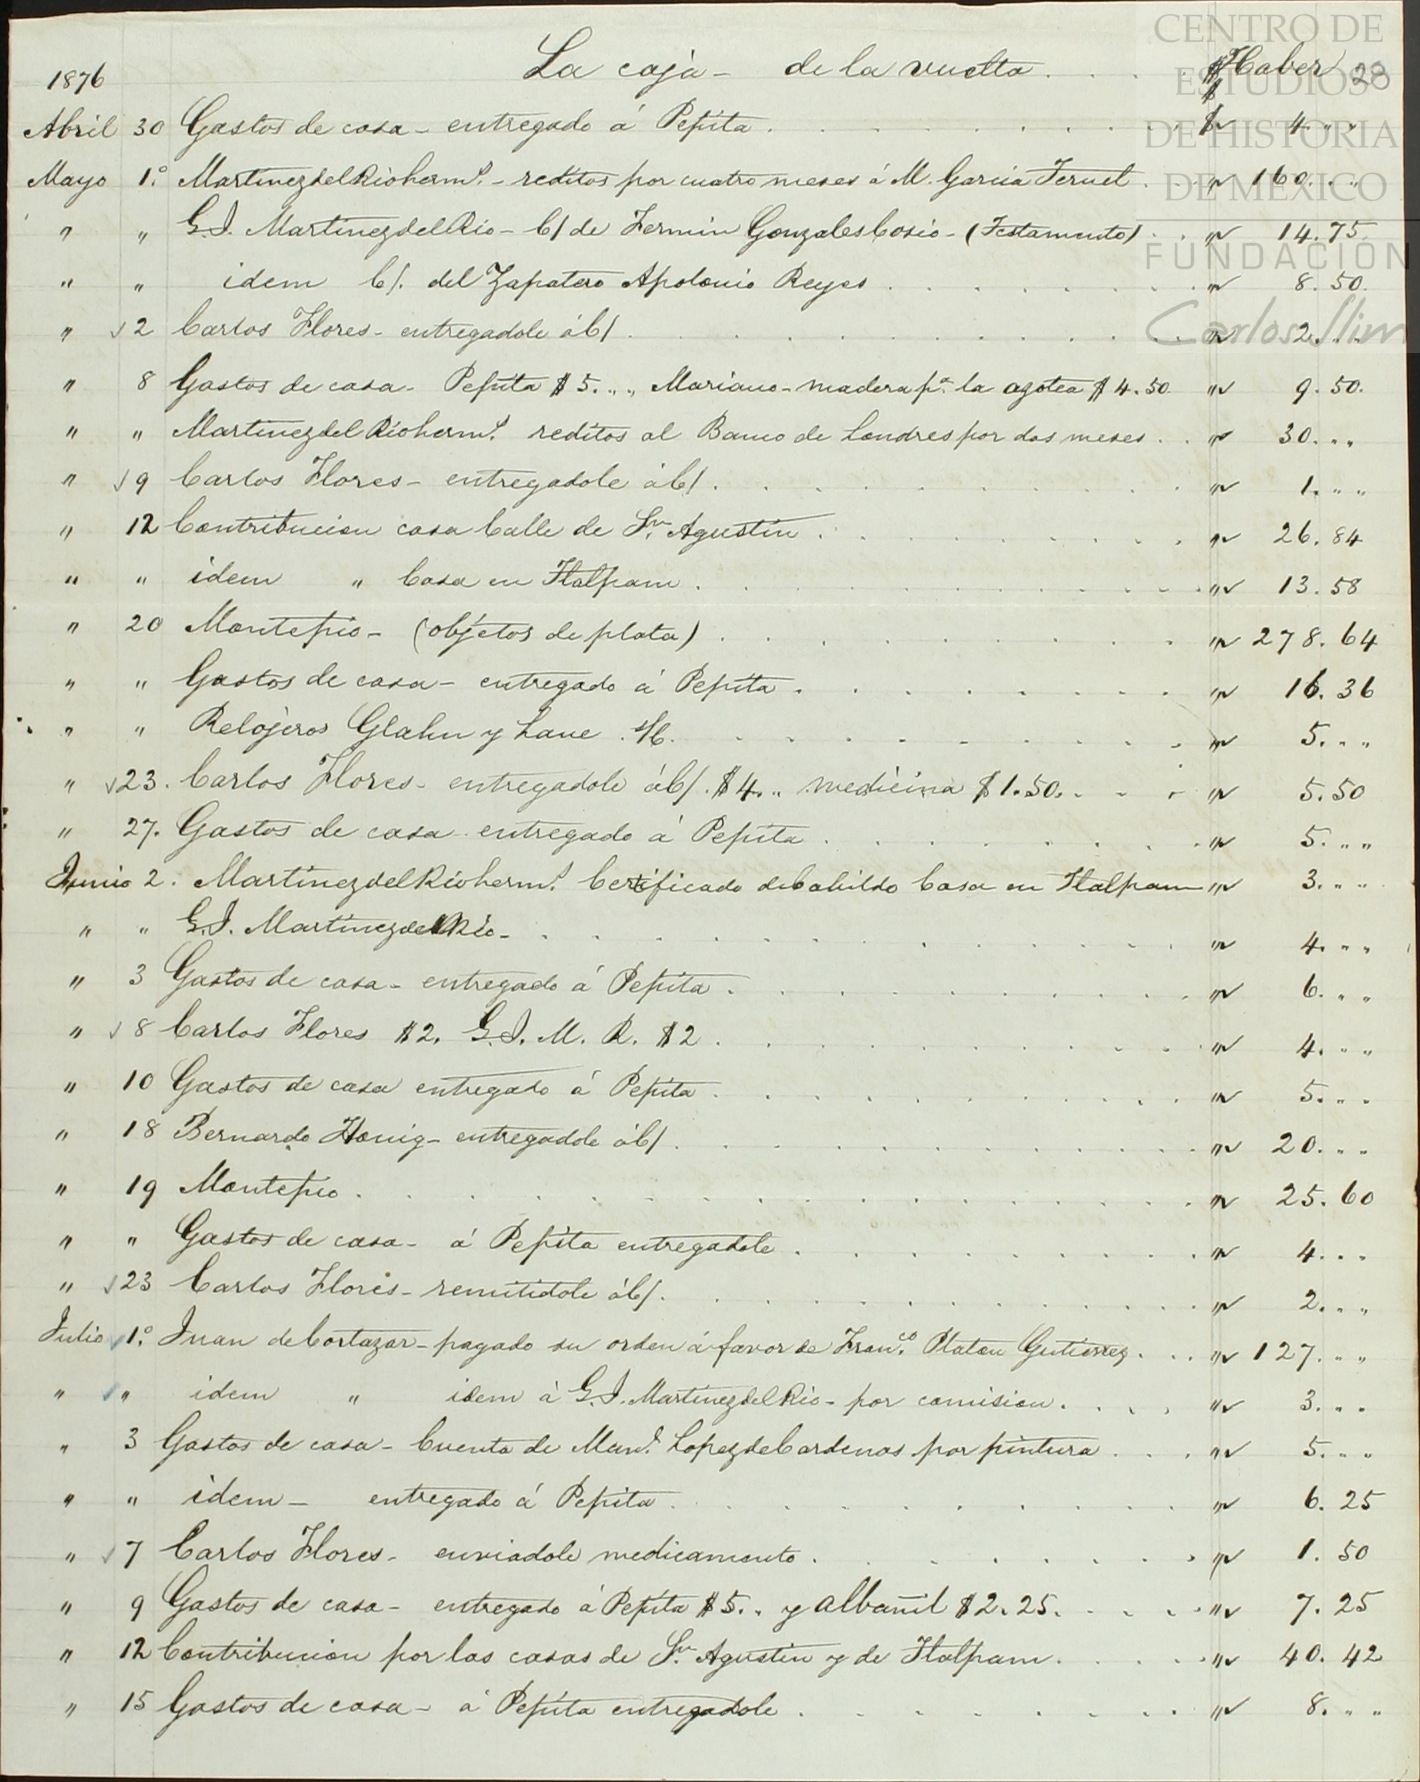 CENTRO DE
ESTUDIOS
DE HISTORIA
DE MEXICO
FUNDACIÓN
Carlos Slim
1876 La caja - de la vuelta . . . . Haber 28
Abril 30 Gastos de casa - entregado á Pepita . . . . . $ 4. „ „
Mayo 1.º Martinez del Rio herm.s - reditos por cuatro meses á M. Garcia Teruel . . „ 160. „ „
„ „ G.I. Martinez del Rio - C/ de Fermin Gonzales Cosio - (Testamento) . . „ 14. 75
„ „ idem C/. del Zapatero Apolonio Reyes . . . . „ 8. 50.
„ 2 Carlos Flores - entregadole á C/ . . . . „ 2. „ „
„ 8 Gastos de casa - Pepita $ 5. „ „ Mariano - madera p.a la azotea $ 4.50. „ 9. 50.
„ „ Martinez del Rio herm.s reditos al Banco de Londres por dos meses . . „ 30. „ „
„ 9 Carlos Flores - entregadole á C/ . . . . „ 1. „ „
„ 12 Contribucion casa Calle de Sn. Agustin . . . . „ 26. 84
„ „ idem „ Casa en Tlalpam . . . . „ 13. 58
„ 20 Montepio - (objetos de plata) . . . . „ 278. 64
„ „ Gastos de casa - entregado á Pepita . . . . „ 16. 36
„ „ Relojeros Glahn y Lane . . . . „ 5. „ „
„ 23. Carlos Flores - entregadole á C/. $ 4. „ medicina $ 1.50. - - „ 5. 50
„ 27. Gastos de casa entregado á Pepita . . . . „ 5. „ „
Junio 2. Martinez del Rio herm.s Certificado de Cabildo Casa en Tlalpam „ 3. „ „
„ „ G.I. Martinez del Rio - . . . . „ 4. „ „
„ 3 Gastos de casa - entregado á Pepita . . . . „ 6. „ „
„ 8 Carlos Flores $2. G.I. M. R. $2 . . . . „ 4. „ „
„ 10 Gastos de casa entregado á Pepita . . . . „ 5. „ „
„ 18 Bernardo Honig - entregadole á C/ . . . . „ 20. „ „
„ 19 Montepio . . . . „ 25. 60
„ „ Gastos de casa - á Pepita entregadole . . . . „ 4. „ „
„ 23 Carlos Flores - remitidole á C/. . . . . „ 2. „ „
Julio 1.º Juan de Cortazar - pagado su orden á favor de Fran.co Platon Gutierrez . . . „ 127. „ „
„ „ idem „ idem á G.I. Martinez del Rio - por comision . . . . „ 3. „ „
„ 3 Gastos de casa - Cuenta de Man.l Lopez de Cardenas por pintura . . . „ 5. „ „
„ „ idem - entregado á Pepita . . . . „ 6. 25
„ 7 Carlos Flores - enviadole medicamento . . . . „ 1. 50
„ 9 Gastos de casa - entregado á Pepita $ 5. „ y albañil $ 2.25. . . . „ 7. 25
„ 12 Contribucion por las casas de Sn. Agustin y de Tlalpam . . . . „ 40. 42
„ 15 Gastos de casa - á Pepita entregadole . . . . „ 8. „ „